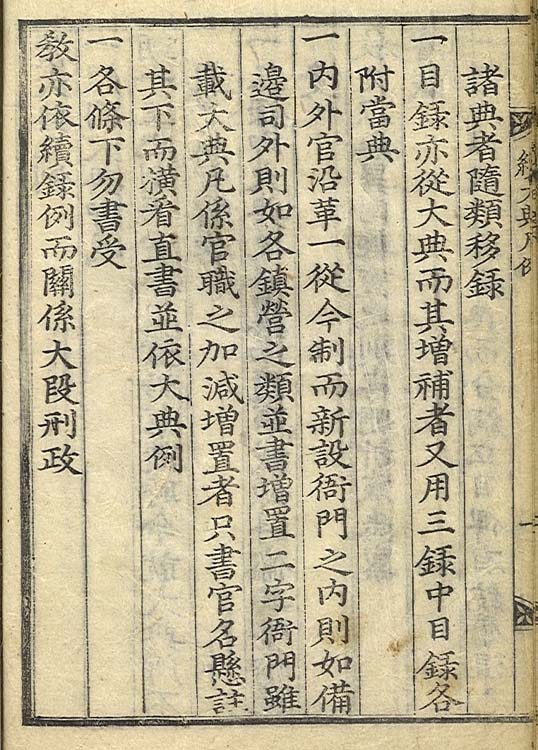 續大典凡例
諸典者隨類移錄
一目錄亦從大典而其增補者又用三錄中目錄各
附當典
一內外官沿革一從今制而新設衙門之內則如備
邊司外則如各鎮營之類並書增置二字衙門雖
載大典凡係官職之加減增置者只書官名懸註
其下而橫看直書並依大典例
一各條下勿書受
敎亦依續錄例而關係大段刑政